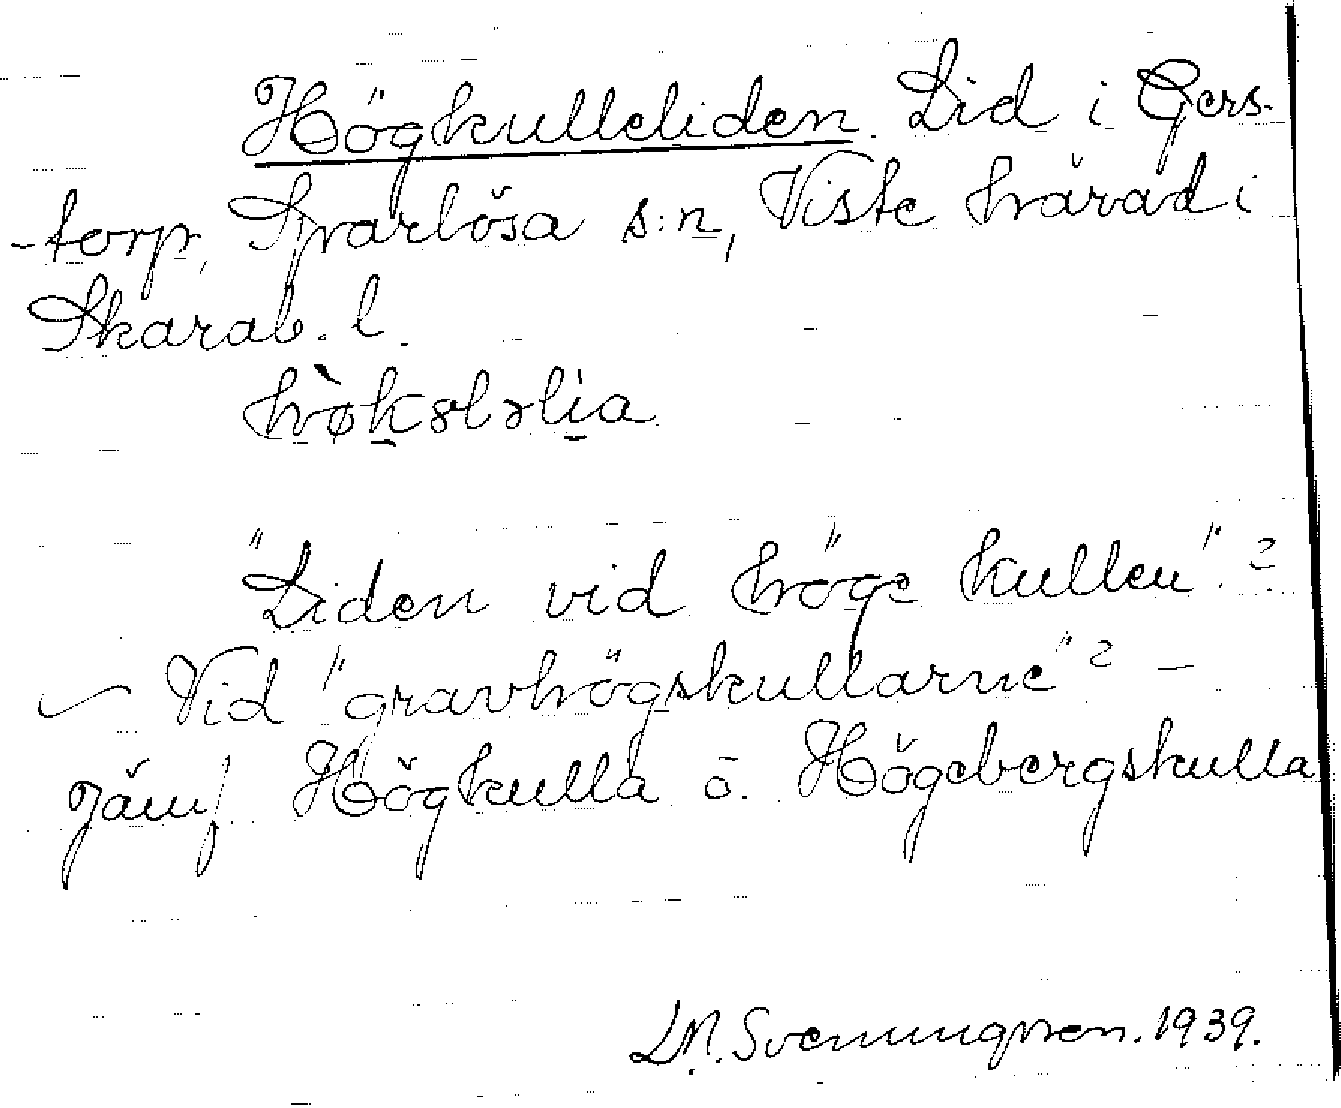 Högkulleliden. Lid i Gers-
-torp, Sparlösa s:n, Viste härad i
Skarab. l.
"Liden vid höge kullen". ?
Vid "gravhögskullarne" ? —
Jämf Högkulla o. Högebergskulla
L.N. Svenungsson. 1939.